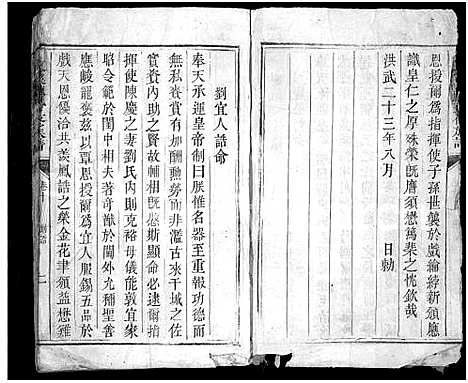 恩授爾爲指揮使子孫世襲於戲綸綍新頒應
識皇仁之厚殊榮既膺須懋萬葉之忱欽哉
洪武二十三年八月
日勅
劉宜人誥命
奉天承運皇帝制曰朕惟名器至重報功德而
無私眷賞有加酬勳勞而非濫古來干城之佐
實資內助之賢故所以懋斯顯命必逮爾指
揮使陳慶之妻劉氏內則克裕母儀能敦宜家
昭令範於閨中相夫著奇猷於閫外允稱聖善
應峻寵褒茲以覃恩授爾爲宜人服錫五品於
戲天恩優洽共羨鳳誥之榮金花聿頒益懋雞